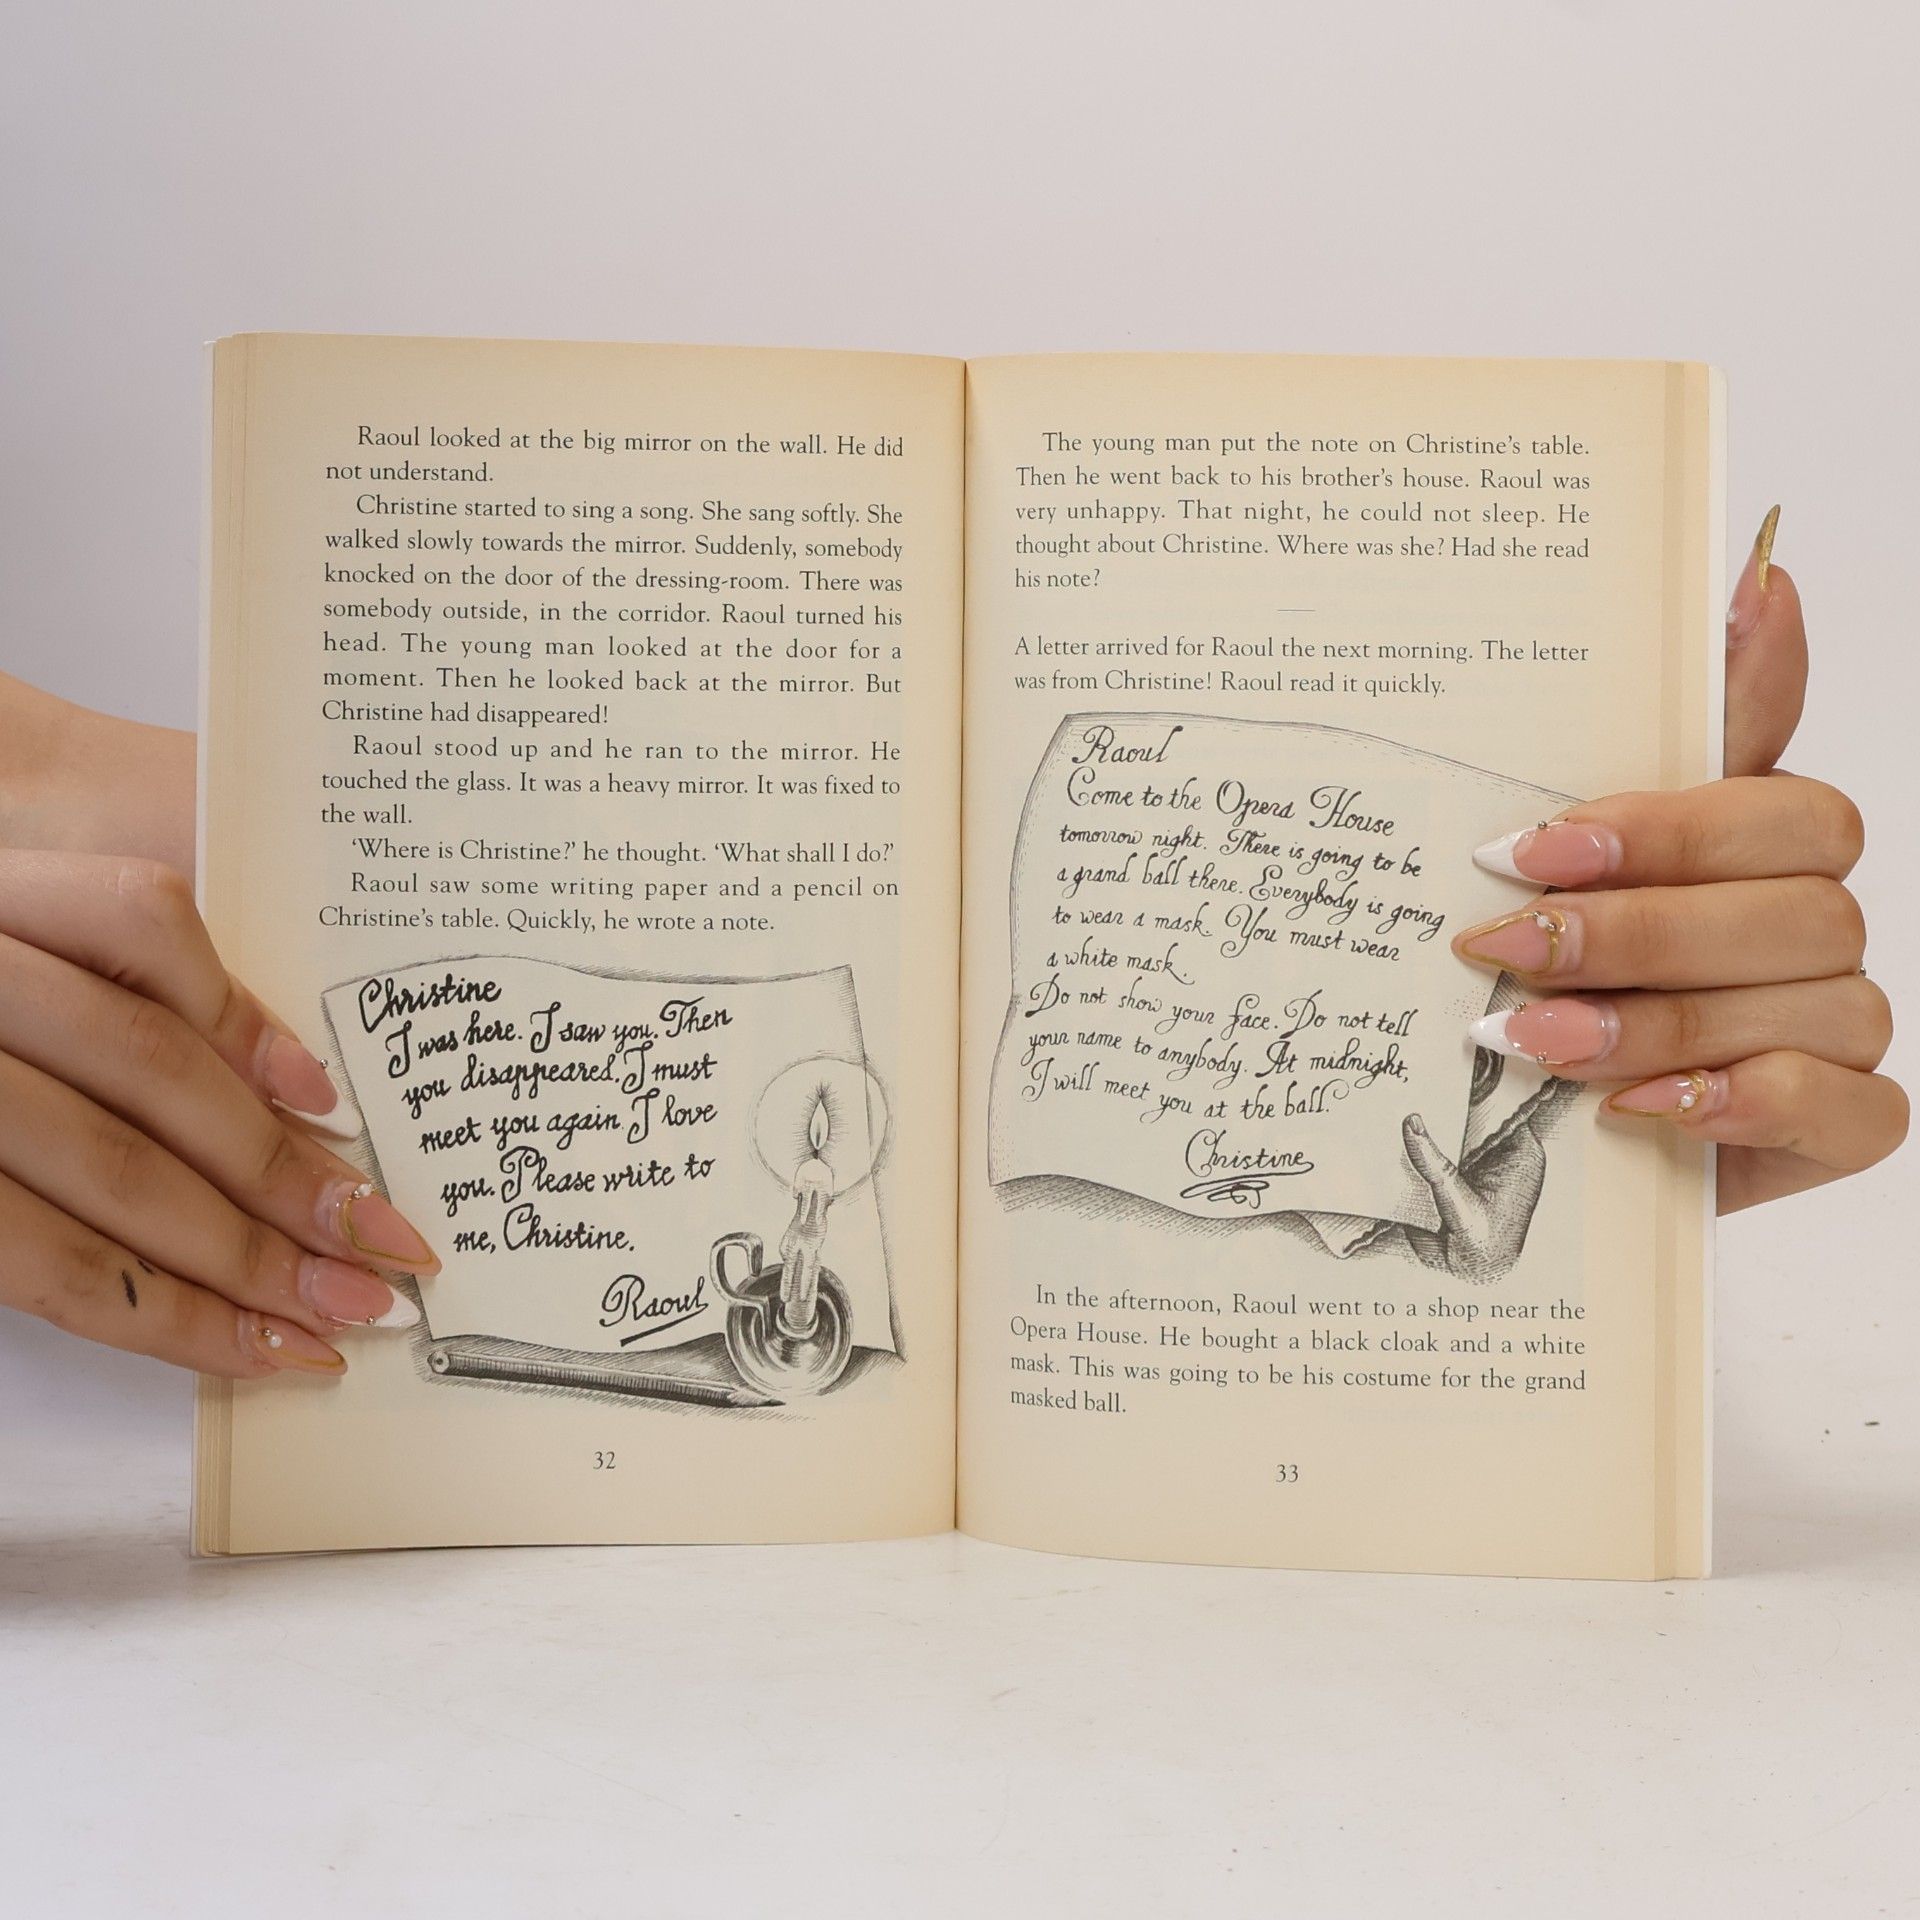 Raoul looked at the big mirror on the wall. He did
not understand.
Christine started to sing a song. She sang softly. She
walked slowly towards the mirror. Suddenly, somebody
knocked on the door of the dressing-room. There was
somebody outside, in the corridor. Raoul turned his
head. The young man looked at the door for a
moment. Then he looked back at the mirror. But
Christine had disappeared!
Raoul stood up and he ran to the mirror. He
touched the glass. It was a heavy mirror. It was fixed to
the wall.
‘Where is Christine?’ he thought. ‘What shall I do?’
Raoul saw some writing paper and a pencil on
Christine’s table. Quickly, he wrote a note.
Christine
I was here. I saw you. Then
you disappeared. I must
meet you again. I love
you. Please write to
me, Christine.
Raoul
32
The young man put the note on Christine’s table.
Then he went back to his brother’s house. Raoul was
very unhappy. That night, he could not sleep. He
thought about Christine. Where was she? Had she read
his note?
A letter arrived for Raoul the next morning. The letter
was from Christine! Raoul read it quickly.
Raoul
Come to the Opera House
tomorrow night. There is going to be
a grand ball there. Everybody is going
to wear a mask. You must wear
a white mask.
Do not show your face. Do not tell
your name to anybody. At midnight,
I will meet you at the ball.
Christine
In the afternoon, Raoul went to a shop near the
Opera House. He bought a black cloak and a white
mask. This was going to be his costume for the grand
masked ball.
33